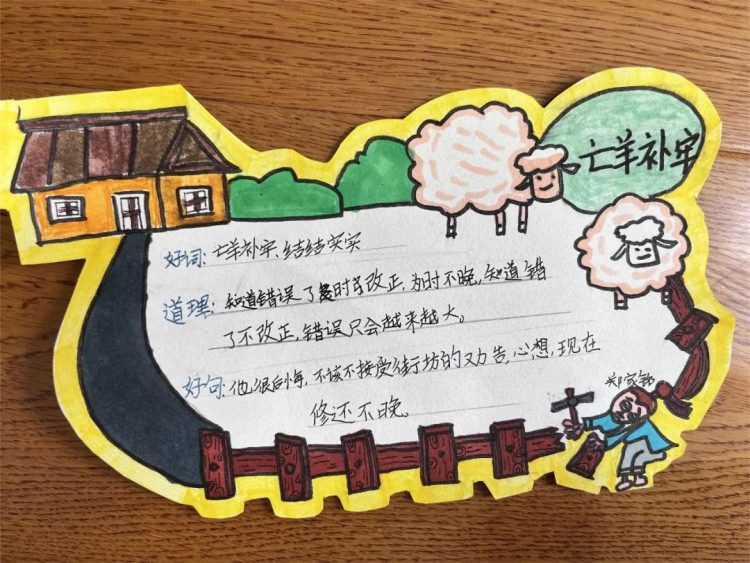 亡羊补牢
好词:亡羊补牢、结结实实
道理:知道错误了及时改正,为时不晚,知道错
了不改正,错误只会越来越大。
好句:他很后悔,不该不接受街坊的劝告,心想,现在
修还不晚。